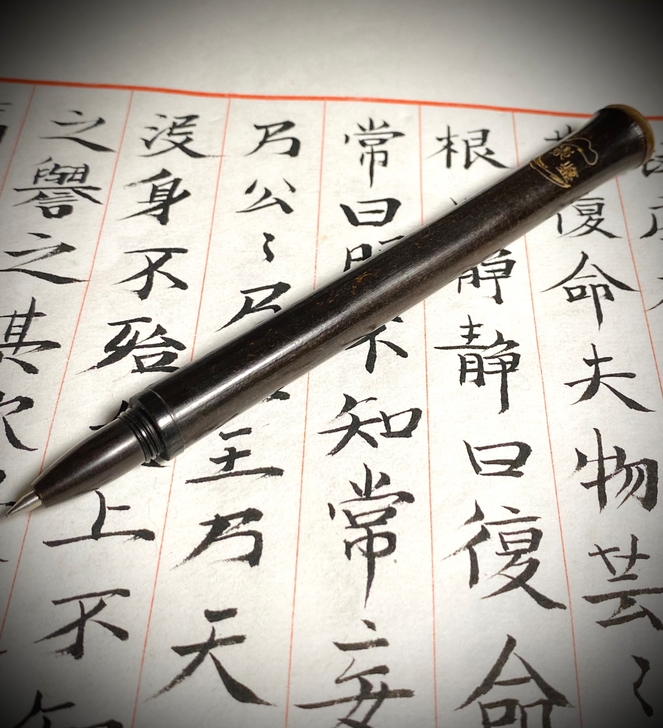 復命夫物芸〻
根静静曰復命
常曰明不知常妄
乃公〻乃王乃天
没身不殆上不知
之譽之其次